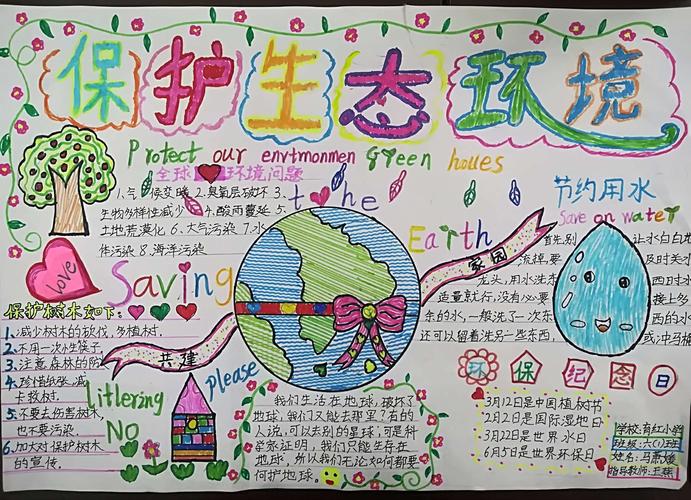 保护生态环境
Protect our envtmonmen Green houes
全球环境问题
1.气候变暖 2.臭氧层破坏 3.
生物多样性减少 4.酸雨蔓延 5.
土地荒漠化 6.大气污染 7.水
体污染 8.海洋污染
Saving
the
Earth
love
家园
共建
保护树木如下:
1.减少树木的砍伐,多植树.
2.不用一次性筷子.
3.注意森林的防
4.珍惜纸张,减
卡救树.
5.不要去伤害树木,
也不要污染.
6.加大对保护树木
的宣传.
Litlering
NO
please
我们生活在地球,破坏了
地球,我们又能去哪里?有的
人说,可以去别的星球,可是科
学家证明,我们只能生存在
地球,所以我们无论如何都要
何护地球。
节约用水
Save on water
首先,别让水白白地
流掉,要及时关水
龙头,用水洗东西时水
适量就行,没有必要接上多
余的水,一般洗了一次东西的水
还可以留着洗另一些东西,或冲马桶
环保纪念日
3月12日是中国植树书
2月2日是国际湿地日
3月22日是世界水日
6月5日是世界环保日
学校:育红小学
班级:六(1)班
姓名:马萧煌
指导教师:王燕